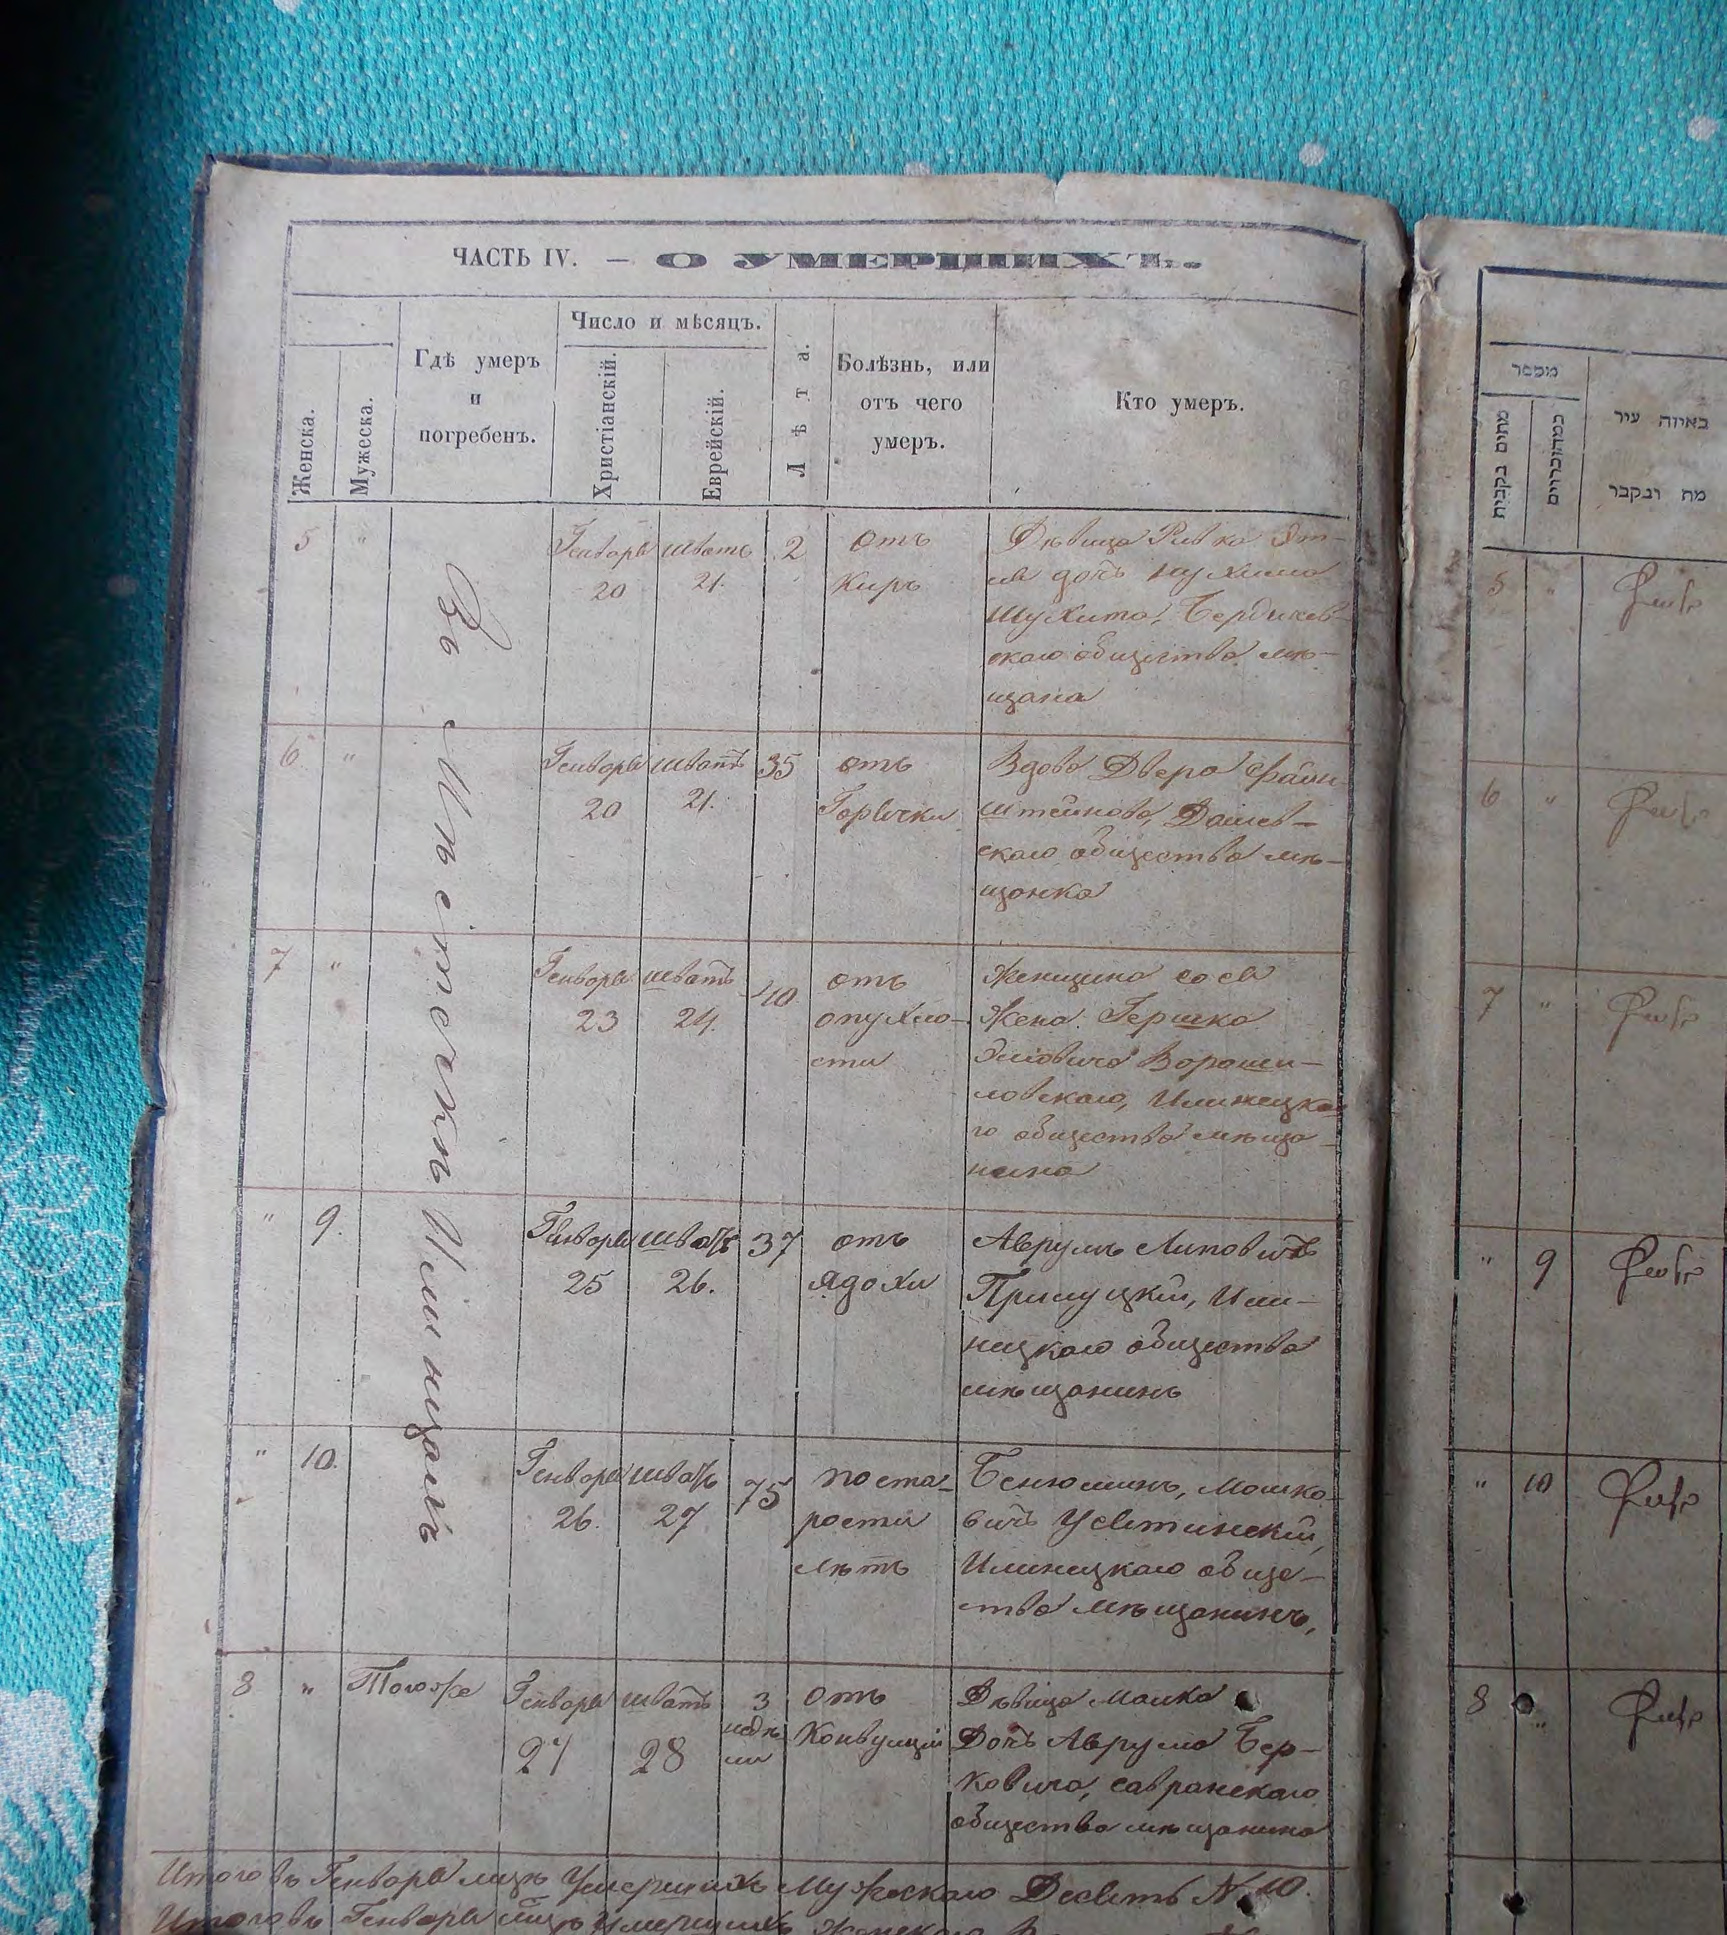 ЧАСТЬ IV. — О УМЕРШИХЪ.
Женска.
Мужеска.
Гдѣ умеръ
и
погребенъ.
Число и мѣсяцъ.
Христіанскій.
Еврейскій.
Лѣта.
Болѣзнь, или
отъ чего
умеръ.
Кто умеръ.
Въ Мѣстечкѣ Илинцахъ
5 " Генваря 20 шватъ 21. 2
отъ
Киръ
Дѣвица Ривка Эт-
ля дочь Нухима
Бердичев-
скаго общества мѣ-
щана
6 " Генваря 20 шватъ 21. 35
отъ
Горячки
Вдова Двера Фай
штейнова, Дашев-
скаго общества мѣ-
щанка
7 " Генваря 23 шватъ 24. 40
отъ
опухло-
сти
Женщина Сося
Жена Гершка
Вороши-
ловскаго, Илинецка
го общества мѣща-
нина
" 9. Генваря 25 шватъ 26. 37
отъ
Ядохи
Аврумъ Липовичъ
Прилуцкій, Или-
нецкаго общества
мѣщанинъ
" 10. Генваря 26. шватъ 27 75
по ста-
рости
лѣтъ
Бенюминъ, Мошко-
вичъ Усятинскій,
Илинецкаго обще-
ства мѣщанинъ,
8 " Тогоже Генваря 27 шватъ 28 3
недѣ
ли
отъ
Конвульцій
Дѣвица Малка
Дочь Аврума Бер-
ковича, савранскаго
общества мѣщанина
Итого въ Генварѣ лицъ Умершихъ Мужескаго Десять N 10.
Итого въ Генварѣ лицъ Умершихъ Женскаго
מספר
באיזה עיר
מת ונקבר
5 "
6 "
7 "
" 9
" 10
8 "